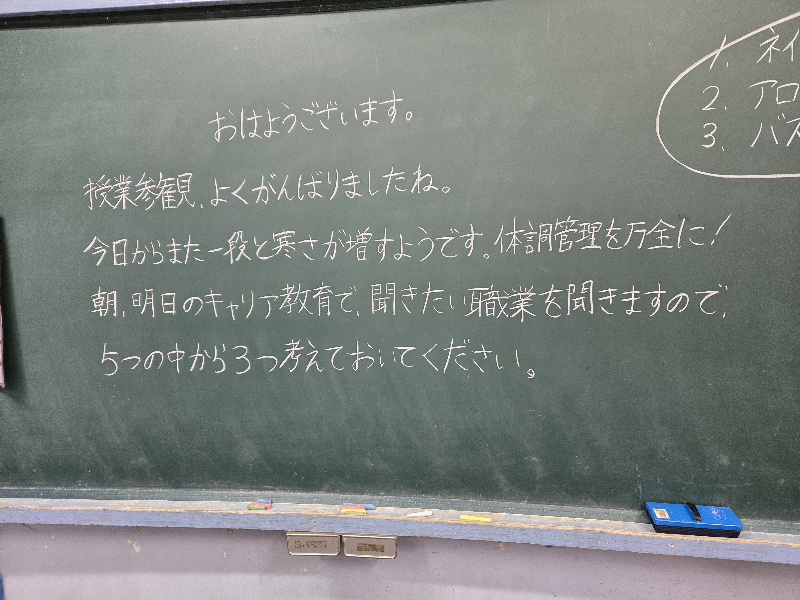 おはようございます。
授業参観、よくがんばりましたね。
今日からまた一段と寒さが増すようです。体調管理を万全に！
朝、明日のキャリア教育で、聞きたい職業を聞きますので、
5つの中から3つ考えておいてください。
1. ネイ
2. アロ
3. バス